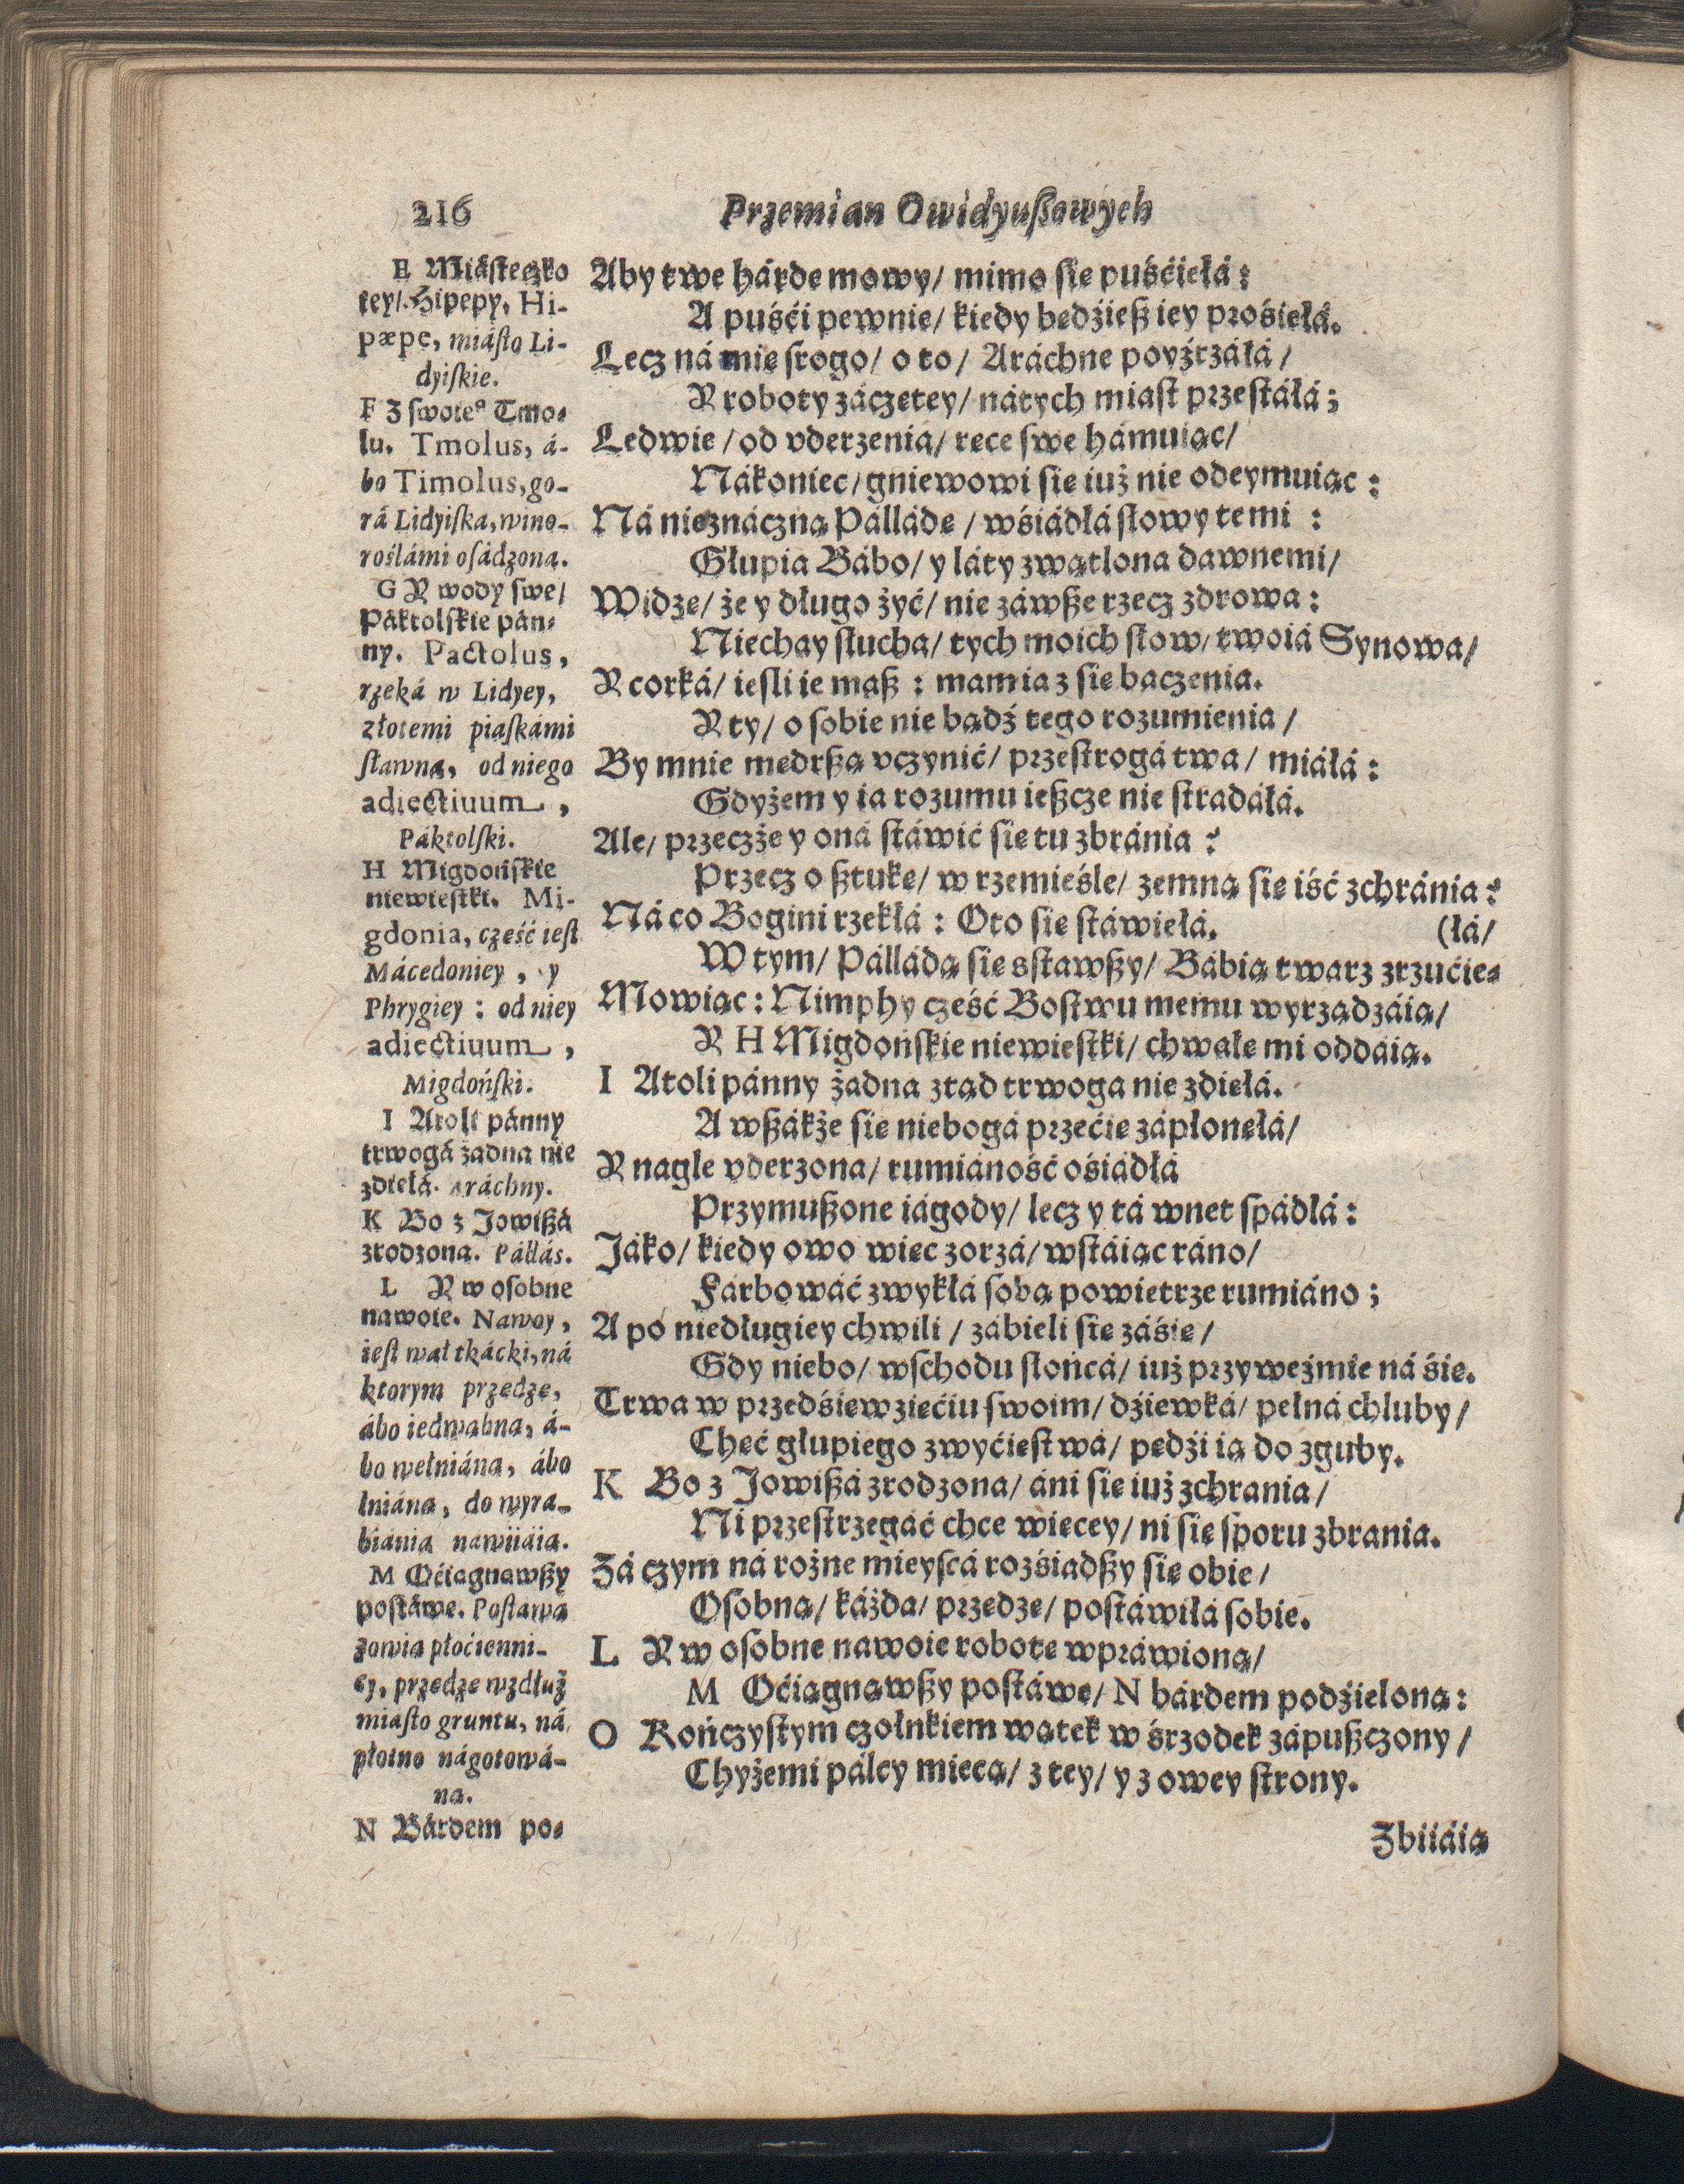 216
Przemian Owidyuſzowych
E Miáſteczko
tey/ Hipepy. Hi-
pæpe, miáſto Li-
dyiſkie.
F Z ſwoieº Tmo-
lu. Tmolus, á-
bo Timolus, go-
rá Lidyiſka, wino-
roślámi oſádzona.
G Y wody ſwe/
Páktolſkie pán-
ny. Pactolus,
rzeká w Lidyey,
złotemi piaſkámi
ſławna, od niego
adiectiuum,
Páktolſki.
H Migdońſkie
niewieſtki. Mi-
gdonia, część ieſt
Mácedoniey, y
Phrygiey : od niey
adiectiuum,
Migdońſki.
I Atoli pánny
trwogá żadna nie
zdięłá. Aráchny.
K Bo z Jowiſzá
zrodzona. Pállás.
L Y w oſobne
nawoie. Nawoy,
ieſt wał tkácki, ná
ktorym przędzę,
ábo iedwabną, á-
bo wełniáną, ábo
lniáną, do wyra-
biánia nawiiáią.
M Oćiągnąwſzy
poſtáwę. Poſtawą
zowią płoćienni-
cy, przędzę wzdłuż
miaſto gruntu, ná
płotno nágotowá-
ną.
N Bárdem po-
Aby twe hárde mowy/ mimo ſię puśćiełá :
A puśći pewnie/ kiedy będźieſz iey prośiełá.
Lecz ná mię ſrogo/ o to/ Aráchne poyźrzáłá/
Y roboty záczętey/ nátych miaſt przeſtáłá ;
Ledwie/ od vderzenia/ ręce ſwe hámuiąc/
Nákoniec/ gniewowi ſię iuż nie odeymuiąc :
Ná nieznáczną Pálládę/ wśiádłá ſłowy temi :
Głupia Bábo/ y láty zwątlona dawnemi/
Widzę/ że y długo żyć/ nie záwſze rzecz zdrowa :
Niechay ſłucha/ tych moich ſłow/ twoiá Synowa/
Y corká/ ieſli ie maſz : mam ia z ſię baczenia.
Y ty/ o ſobie nie bądź tego rozumienia/
By mnie mędrſzą vczynić/ przeſtrogá twa/ miáłá :
Gdyżem y ia rozumu ieſzcze nie ſtradáłá.
Ale/ przeczże y oná ſtáwić ſię tu zbránia ?
Przecz o ſztukę/ w rzemieśle/ zemną ſię iść zchránia ?
Ná co Bogini rzekłá : Oto ſię ſtáwiełá.
(łá/
W tym/ Pálládą ſię sſtawſzy/ Bábią twarz zrzućie-
Mowiąc : Nimphy cześć Boſtwu memu wyrządzáią/
Y H Migdońſkie niewieſtki/ chwałę mi oddáią.
I Atoli pánny żadna ztąd trwoga nie zdiełá.
A wſzákże ſię niebogá przećię zápłonęłá/
Y nagle vderzona/ rumiáność ośiádłá
Przymuſzone iágody/ lecz y tá wnet ſpádłá :
Jáko/ kiedy owo więc zorzá/ wſtáiąc ráno/
Fárbowáć zwykłá ſobą powietrze rumiáno ;
A po niedługiey chwili/ zábieli ſię záśię/
Gdy niebo/ wſchodu ſłońcá/ iuż przyweźmie ná śię.
Trwa w przedśięwzięćiu ſwoim/ dźiewká/ pełná chluby/
Chęć głupiego zwyćięſtwá/ pędźi ią do zguby.
K Bo z Jowiſzá zrodzona/ áni ſię iuż zchrania/
Ni przeſtrzegáć chce więcey/ ni ſię ſporu zbrania.
Zá czym ná rożne mieyſcá rozśiadſzy ſię obie/
Oſobną/ káżda/ przędzę/ poſtáwiłá ſobie.
L Y w oſobne nawoie robotę wpráwioną/
M Oćiągnąwſzy poſtáwę/ N bárdem podźieloną :
O Kończyſtym czołnkiem wątek w śrzodek zápuſzczony/
Chyżemi pálcy miecą/ z tey/ y z owey ſtrony.
Zbiiáią